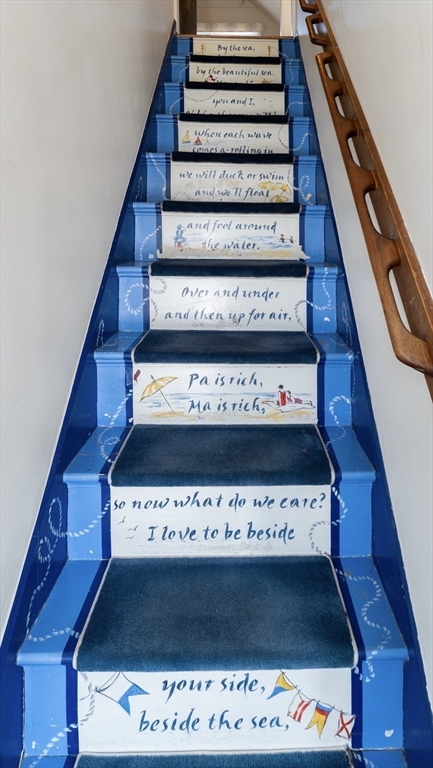 By the sea,
by the beautiful sea,
you and I,
when each wave
comes a-rolling in
we will duck or swim
and we'll float
and fool around
the water.
Over and under
and then up for air,
Pa is rich,
Ma is rich,
so now what do we care?
I love to be beside
your side,
beside the sea,